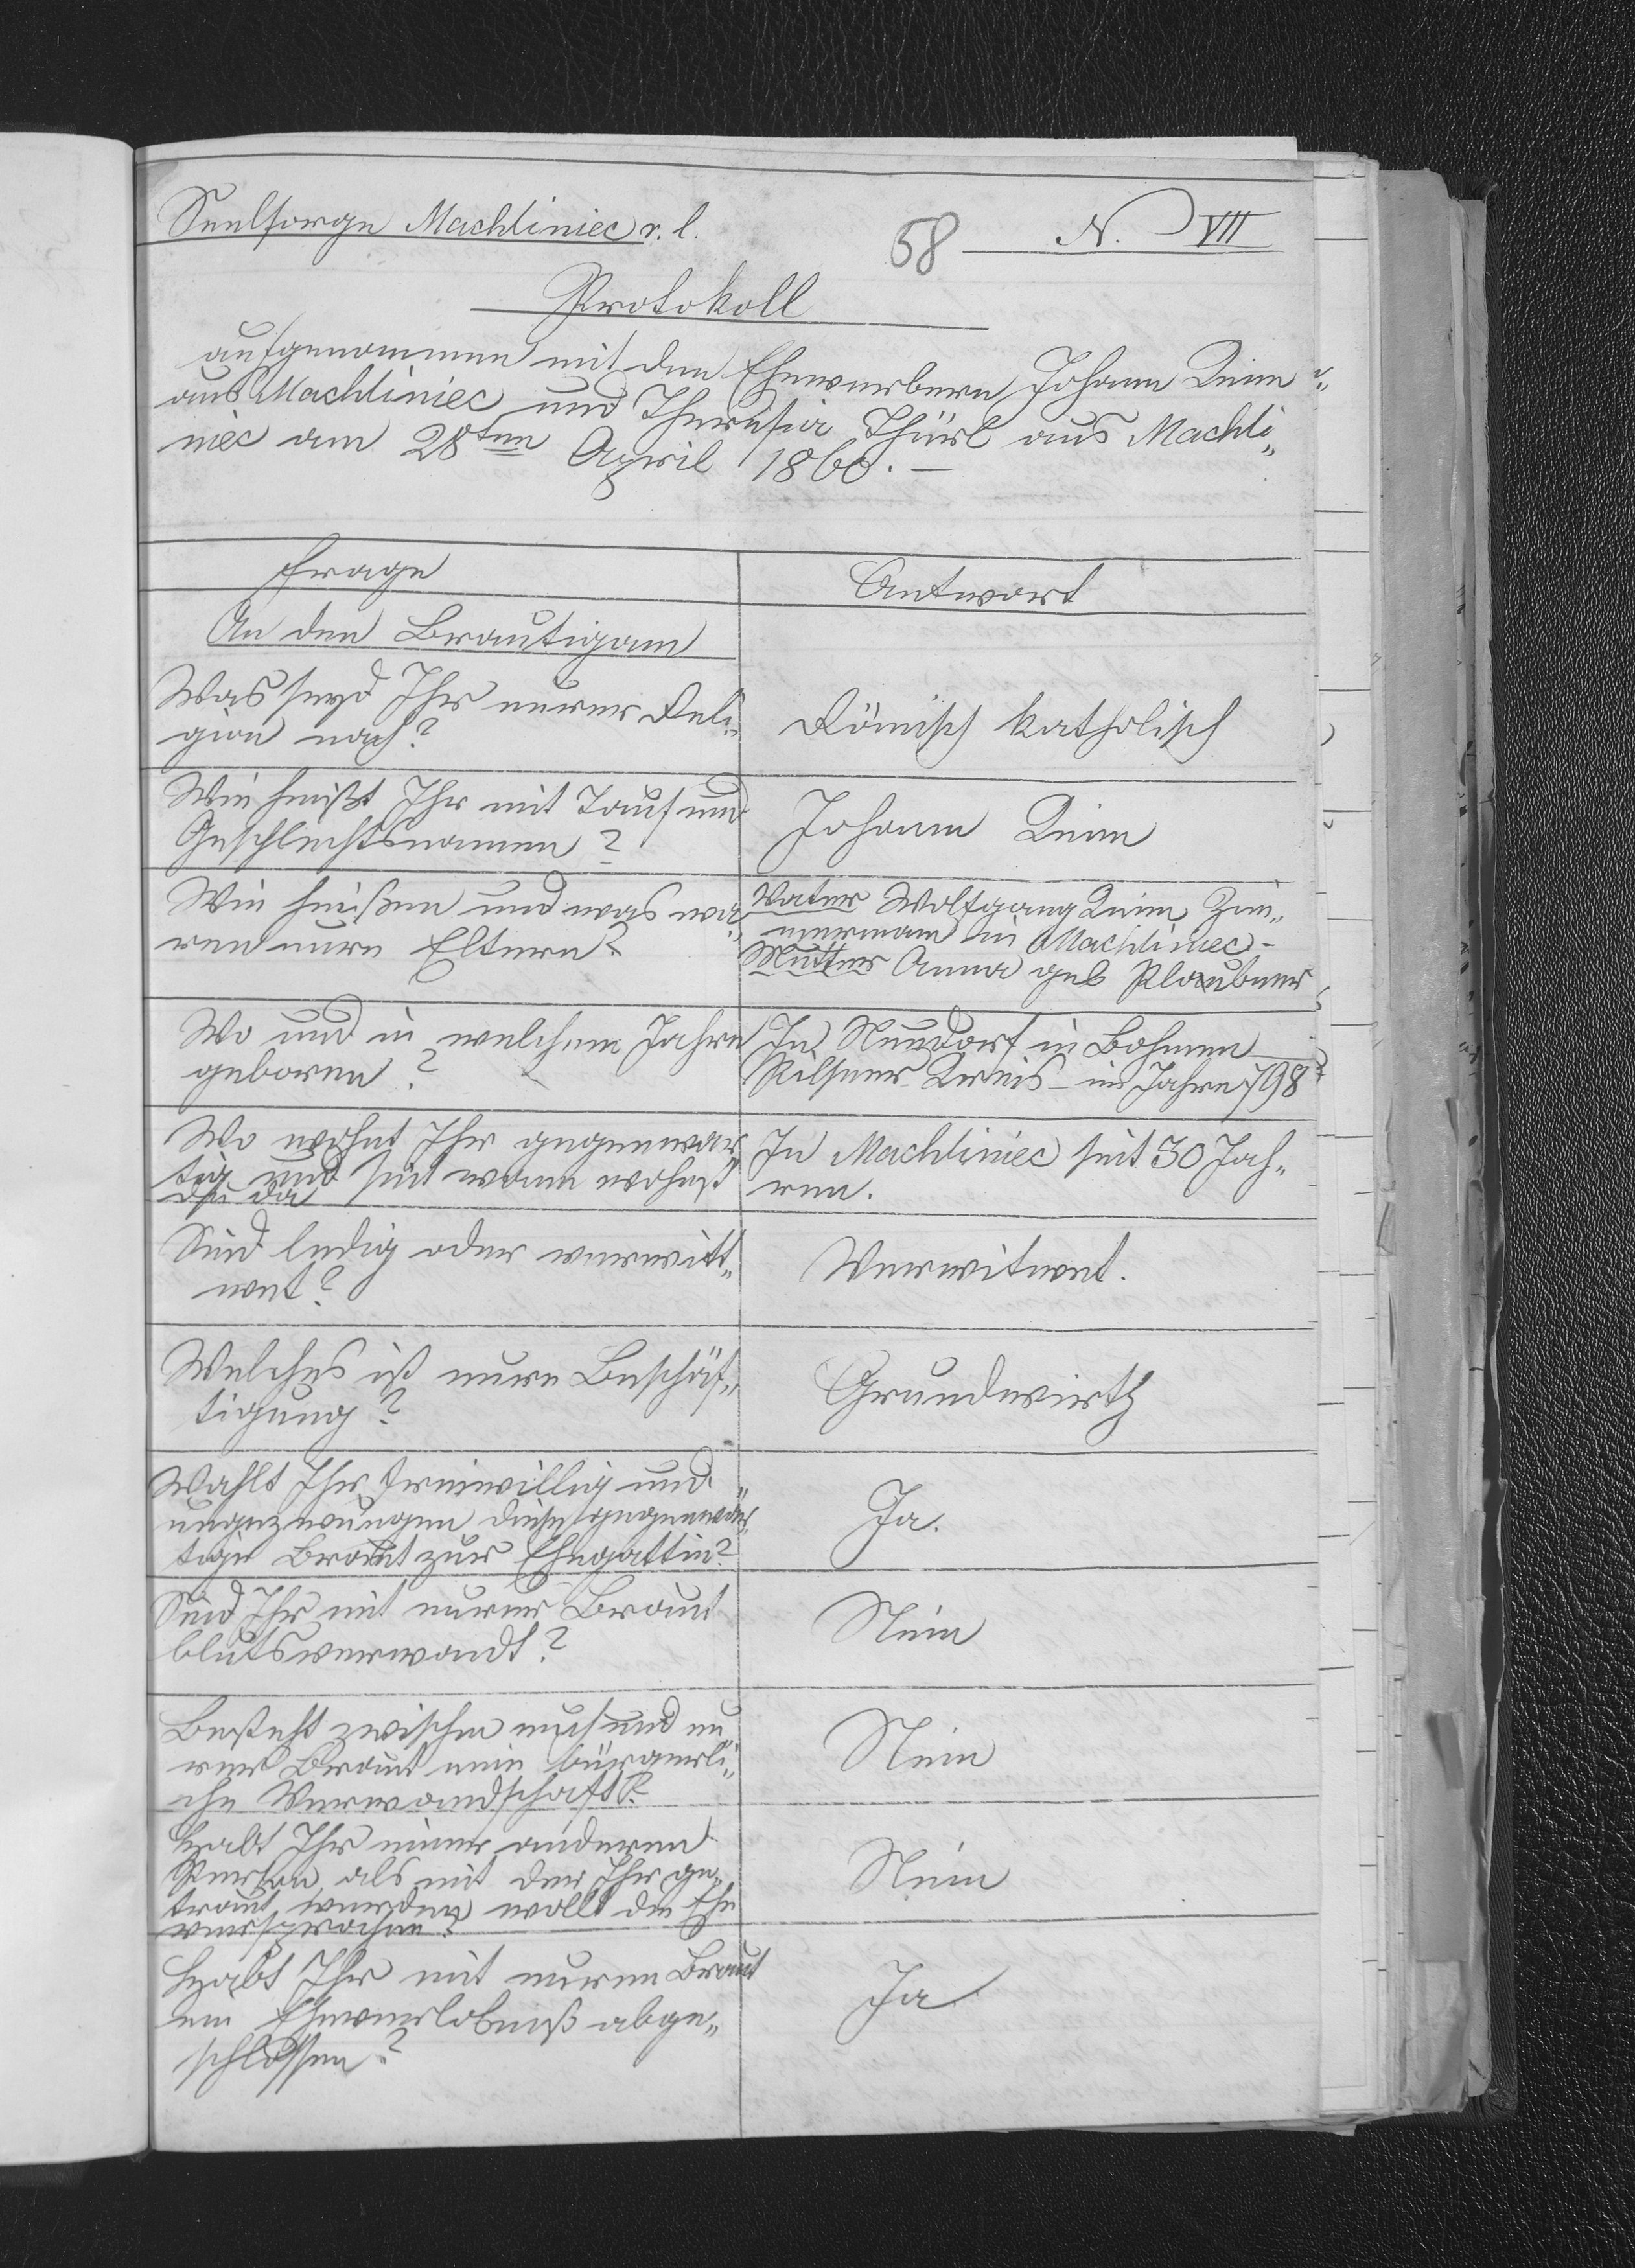 Seelsorge Machliniec r. l.
58 N. VII
Protokoll
aufgenommen mit den Ehewerbern Johann Keim
aus Machliniec und Theresia Thürl aus Machli„
niec am 28ten April 1860. —
Frage
Antwort
An den Brautigam
Was seyd Ihr eurer Reli„
gion nach?
Römisch katholisch
Wie heißt Ihr mit Tauf und
Geschlechtsnamen?
Johann Keim
Wie heißen und was wa„
ren eure Eltern?
Vater Wolfgang Keim Zim„
mermann in Machliniec -
Mutter Anna geb Plaubner
Wo und in welchem Jahre
geboren?
In Neudorf in Bohmen
Pilsner Kreis im Jahre 798
Wo wohnt Ihr gegenwar„
tig und seit wann wohnst
du da
In Machliniec seit 30 Jah„
ren.
Sind ledig oder verwitt„
wet?
Verwitwet.
Welches ist eure Beschäf„
tigung?
Grundwirth
Wahlt Ihr freiwillig und
ungezwungen diese gegenwär„
tige Braut zur Ehegattin?
Ja.
Seid Ihr mit eurer Braut
blutsverwandt?
Nein
Besteht zwischen euch und eu„
rer Braut eine bürgerli„
che Verwandschaft?
Nein
Habt Ihr einer anderen
Person als mit der Ihr ge„
traut werden wollt die Ehe
versprochen?
Nein
Habt Ihr mit euren Braut
ein Eheverlobniß abge„
schlossen?
Ja